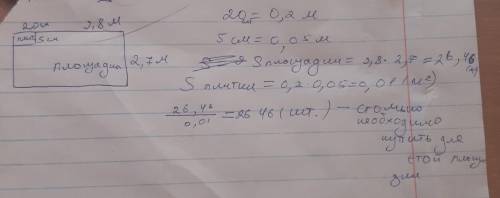 20см 9,8 м
плит 5см
площадка 2,7 м
20см = 0,2 м
5 см = 0,05м
S площадки = 9,8 · 2,7 = 26,46
S плитки = 0,2 · 0,05 = 0,01 (м²)
26,46
0,01
= 2646 (шт.) — столько
необходимо
купить для
этой площ
адки